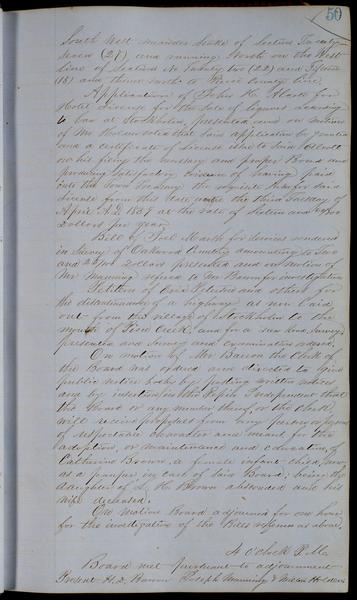 50
South West meander Stake of Section Twenty
Seven (27), and running North on the West
line of Sections No Twenty two (22) and Fifteen
(15) and thence north to Pierce County line.
Application of John H. for
Hotel License for the Sale of liquors according
to law at Stockholm, presented and on motion
of Mr Holden voted that said application be granted
and a certificate of License issue to said
on his filing the necessary and proper Bond and
producing Satisfactory evidence of having paid
into the Town Treasury the requisite sum for said
License from this date until the third Tuesday of
April A.D. 1859 at the rate of Sixteen and /100
Dollars per year.
Bill of Joel for services rendered
in Survey of Cemetery amounting to Two
and 25/100 Dollars presented and on motion of
Mr Manning referred to Mr Barron for investigation
Petition of and others for
the discontinuance of a highway as now laid
out from the village of Stockholm to the
mouth of Pine Creek, and for a new road, Survey
presented and Survey and examination ordered.
On motion of Mr Barron the Clerk of
the Board was ordered and directed to give
public notice by posting written notices
and by insertion in the Pepin Independent that
this Board or any member thereof, or the Clerk,
will receive proposals from any person or persons
of respectable character and means, for the
adoption, or maintainance and education, of
Catharine Brown, a female infant child, now
as a pauper in care of said Board; being the
daughter of Brown absconded and his
wife deceased.
On motion Board adjourned for one hour
for the investigation of the Bills as above.
4 o'clock P.M.
Board met pursuant to adjournment
Present H. D. Barron Joseph Manning & Holden